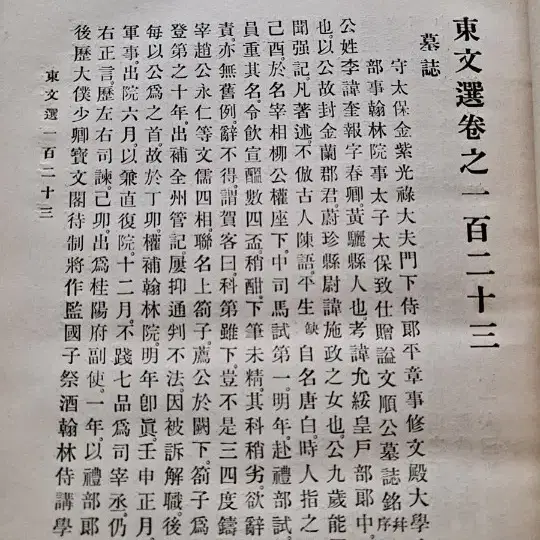 東文選卷之一百二十三
墓誌
守太保金紫光祿大夫門下侍郎平章事修文殿大學
部事翰林院事太子太保致仕贈謚文順公墓誌銘 幷序
公姓李諱奎報字春卿。黃驪縣人也。考諱允綏皇戶部郎中。
也。以公故封金蘭郡君。蔚珍縣尉諱施政之女也。公九歲能
聞强記。凡著述。不倣古人陳語。平生 缺 自名唐白。時人指之
己酉。於名宰相柳公權座下。中司馬試第一。明年。赴禮部試。
員重其名。令飮宣醞數四盃。稍酣。下筆未精。其科稍劣。欲辭
責。亦無舊例。辭不得。謂賀客曰。科第雖下。豈不是三四度鑄
宰趙公永仁等文儒四相。聯名上箚子。薦公於闕下。箚子爲
登第之十年。出補全州管記。屢抑通判不法。因被訴解職。後
每以公爲之首。故於丁卯。權補翰林院。明年卽眞。壬申正月。
軍事。出院六月。以兼直復院。十二月。不踐七品。爲司宰丞。仍
右正言。歷左右司諫。己卯。出爲桂陽府副使。一年。以禮部郎
後歷大僕少卿寶文閣待制將作監國子祭酒翰林侍講學
東文選一百二十三